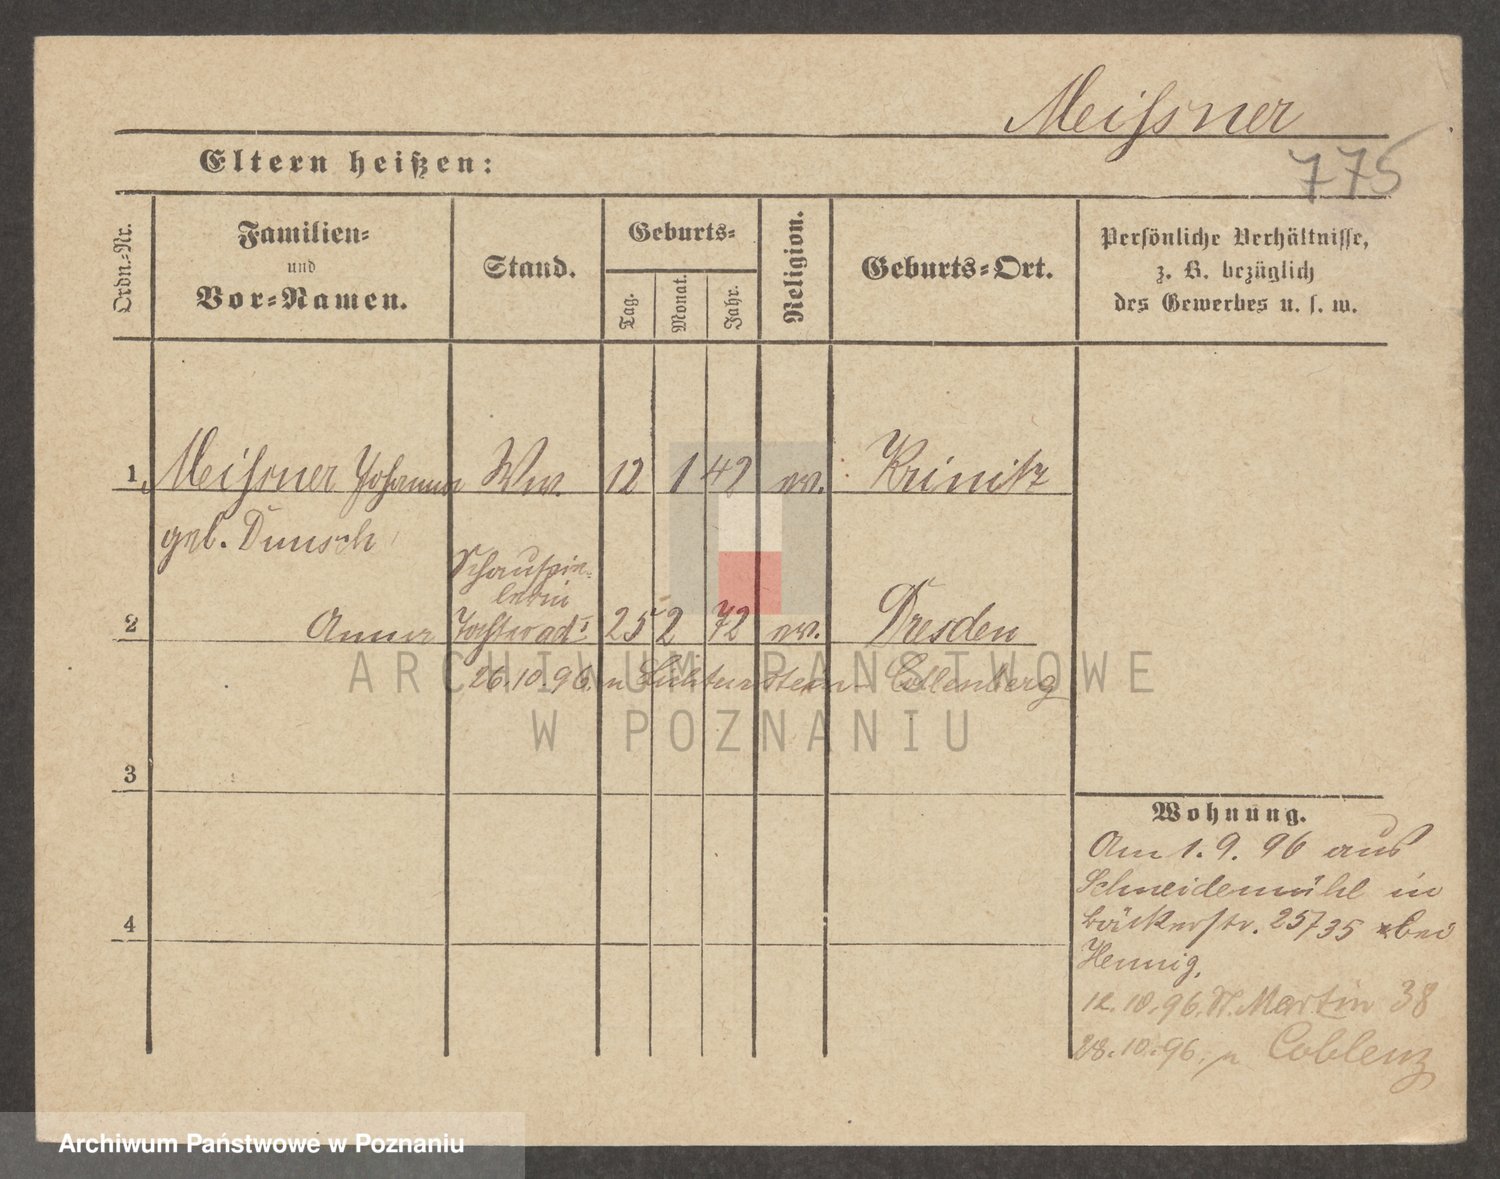 Meißner
775
Eltern heißen:
Ordn.=Nr.
Familien=
und
Vor=Namen.
Stand.
Geburts=
Tag.
Monat.
Jahr.
Religion.
Geburts=Ort.
Persönliche Verhältnisse,
z. B. bezüglich
des Gewerbes u. s. w.
1 Meißner Johanna Ww. 12 1 42 ev. Krinitz
geb. Dunsch
Schauspie-
lerin
2 Anna Tochter ad 1 25 2 72 ev. Dresden
26.10.96. n Lichtenstein Callenberg
3
4
Wohnung.
Am 1.9.96 aus
Schneidemühl in
Bäckerstr. 25/35 bei
Hennig.
12.10.96. St. Martin 38
28.10.96. n Coblenz
ARCHIWUM PAŃSTWOWE
W POZNANIU
Archiwum Państwowe w Poznaniu